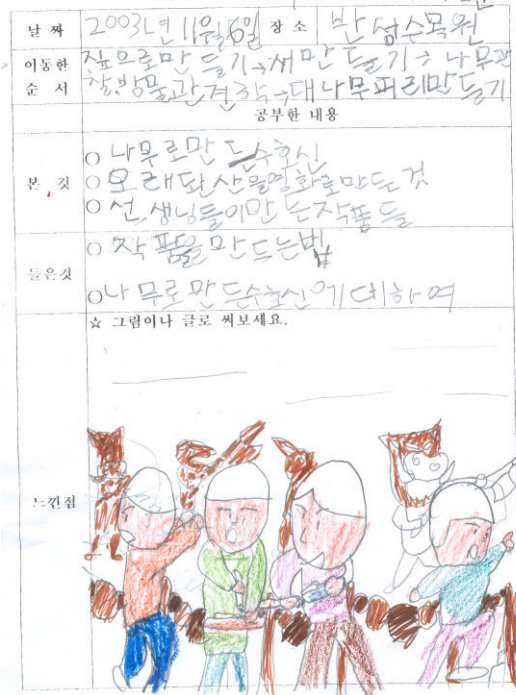 날짜 2003년 11월 6일 장소 반성수목원
이동한 짚으로만들기→새만들기→나무관
순서 찰,방물관견학→대나무피리만들기
공부한 내용
본 것 ○ 나무로만든수호신
○ 모래판산을영화로만든것
○ 선생님들이만든작품들
들은것 ○ 작품을만드는법
○ 나무로만든수호신에대하여
☆ 그림이나 글로 써보세요.
느낀점